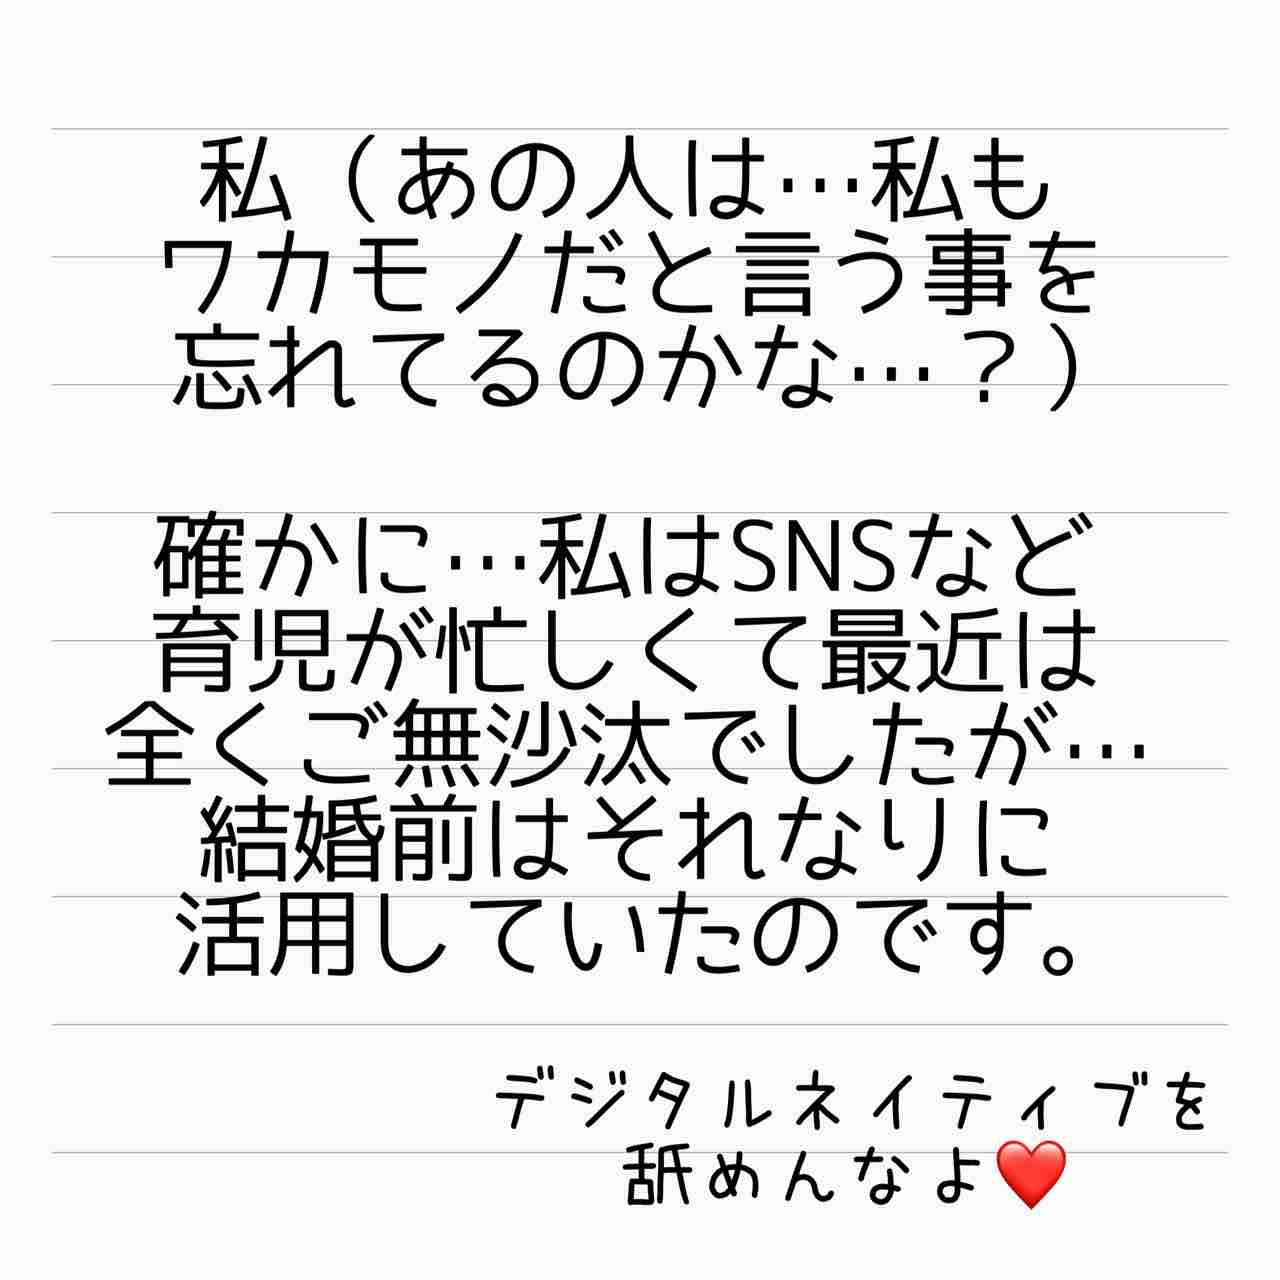 私（あの人は…私も
ワカモノだと言う事を
忘れてるのかな…？）
確かに…私はSNSなど
育児が忙しくて最近は
全くご無沙汰でしたが…
結婚前はそれなりに
活用していたのです。
デジタルネイティブを
舐めんなよ❤️